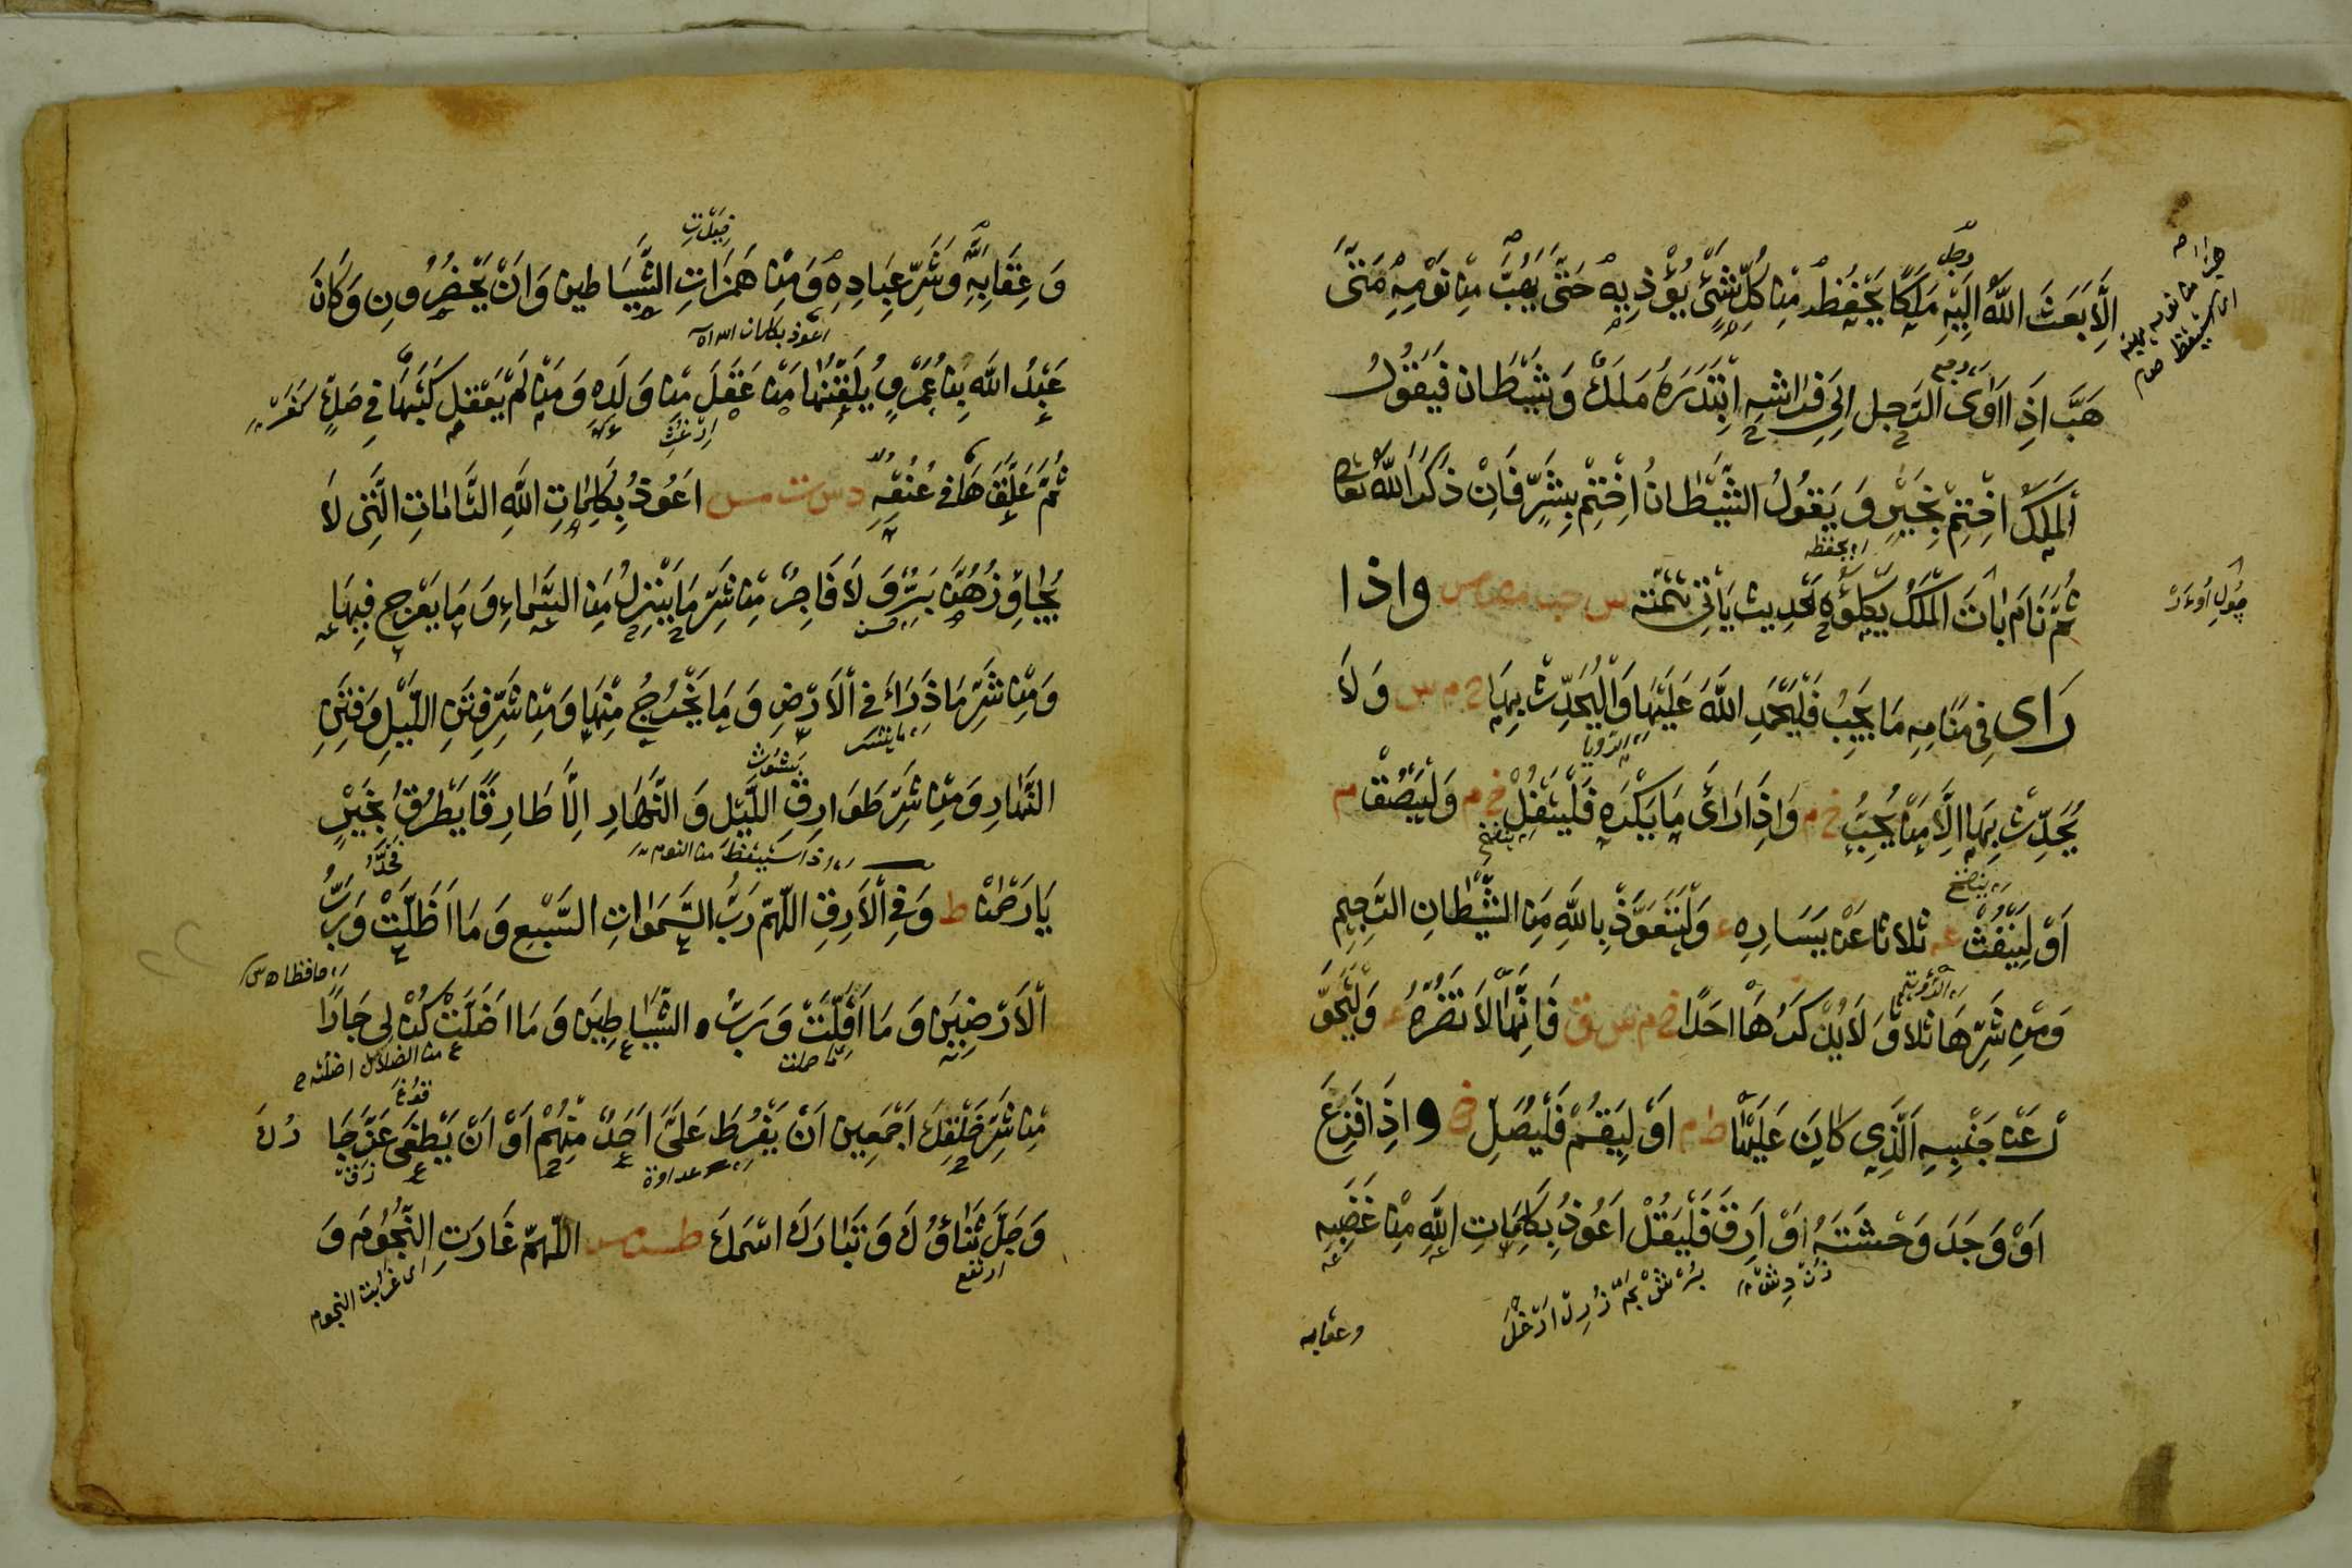 اِلَّا بَعَثَ اللّٰهُ اِلَيْهِ مَلَكًا يَحْفَظُهُ مِنْ كُلِّ شَيْءٍ يُؤْذِيهِ حَتّٰى يَهُبَّ مِنْ نَوْمِهِ مَتٰى
هَبَّ اِذَا اَوَى الرَّجُلُ اِلَى فِرَاشِهِ ابْتَدَرَهُ مَلَكٌ وَشَيْطَان فَيَقُولُ
الْمَلَكُ اخْتِمْ بِخَيْرٍ وَ يَقُولُ الشَّيْطَانُ اخْتِمْ بِشَرٍّ فَاِنْ ذَكَرَ اللّٰهَ تعالى
ثُمَّ نَامَ بَاتَ الْمَلَكُ يَكْلَؤُهُ الحَدِيث يَأْتِي تَتِمَّتُه س حب مص مس واذا
رَاى فِي مَنَامِهِ مَا يُحِبُّ فَلْيَحْمَدِ اللّٰهَ عَلَيْهَا وَلْيُحَدِّثْ بِهَا خ م س وَلَا
يُحَدِّثْ بِهَا اِلَّا مَنْ يُحِبُّ خ م وَاِذَا رَاَى مَا يَكْرَهُ فَلْيَتْفِلْ خ م وَلْيَبْصُقْ م
اَوْ لِيَنْفُثْ عه ثلاثا عَنْ يَسَارِهِ ع وَلْيَتَعَوَّذْ بِاللّٰهِ مِنَ الشَّيْطَانِ الرَّجِيمِ
وَمِنْ شَرِّهَا ثلاثا وَلَا يَذْكُرْهَا اَحَدًا خ م س ق فَاِنَّهَا لَا تَضُرُّهُ ع وَلْيَتَحَوَّ
لْ عَنْ جَنْبِهِ الَّذِي كَانَ عَلَيْهِ م اَوْ لِيَقُمْ فَلْيُصَلِّ خ واِذَا فَزِعَ
اَوْ وَجَدَ وَحْشَتَهُ اَوْ اَرِقَ فَلْيَقُلْ اَعُوذُ بِكَلِمَاتِ اللّٰهِ مِنْ غَضَبِهِ
وعقابه
وَعِقَابِهِ وَشَرِّ عِبَادِهِ وَمِنْ هَمَزَاتِ الشَّيَاطِين وَاَنْ يَحْضُرُونِ وَكَانَ
اعوذ بكلمات الله
عَبْدُ اللّٰهِ بْنُ عَمْرٍو يُلَقِّنُهَا مَنْ عَقَلَ مِنْ وَلَدِهِ وَمَنْ لَمْ يَعْقِل كَتَبَهَا فِي صَكٍّ
ثُمَّ عَلَّقَهَا فِي عُنُقِهِ د س ت مس اَعُوذُ بِكَلِمَاتِ اللّٰهِ التَّامَّاتِ الَّتِي لَا
يُجَاوِزُهُنَّ بَرٌّ وَلَا فَاجِرٌ مِنْ شَرِّ مَا يَنْزِلُ مِنَ السَّمَاءِ وَمَا يَعْرُجُ فِيهَا
وَمِنْ شَرِّ مَا ذَرَاَ فِي الْاَرْضِ وَمَا يَخْرُجُ مِنْهَا وَمِنْ شَرِّ فِتَنِ اللَّيْلِ وَفِتَنِ
النَّهَارِ وَمِنْ شَرِّ طَوَارِقِ اللَّيْلِ وَالنَّهَارِ اِلَّا طَارِقًا يَطْرُقُ بِخَيْرٍ
اذا استيقظ من النوم
يَا رَحْمٰنُ ط وَفِي الْاَرَقِ اللّٰهُمَّ رَبَّ السَّمَوَاتِ السَّبْعِ وَمَا اَظَلَّتْ وَرَبَّ
الْاَرَضِينَ وَمَا اَقَلَّتْ وَرَبَّ الشَّيَاطِينَ وَمَا اَضَلَّتْ كُنْ لِي جَارًا
مِنْ شَرِّ خَلْقِكَ اَجْمَعِينَ اَنْ يَفْرُطَ عَلَيَّ اَحَدٌ مِنْهُمْ اَوْ اَنْ يَطْغَى عَزَّ جَا رُكَ
عداوة
وَجَلَّ ثَنَاؤُكَ وَتَبَارَكَ اسْمُكَ طس مص اللّٰهُمَّ غَارَتِ النُّجُومُ وَ
ارتفع
اى غربت النجوم